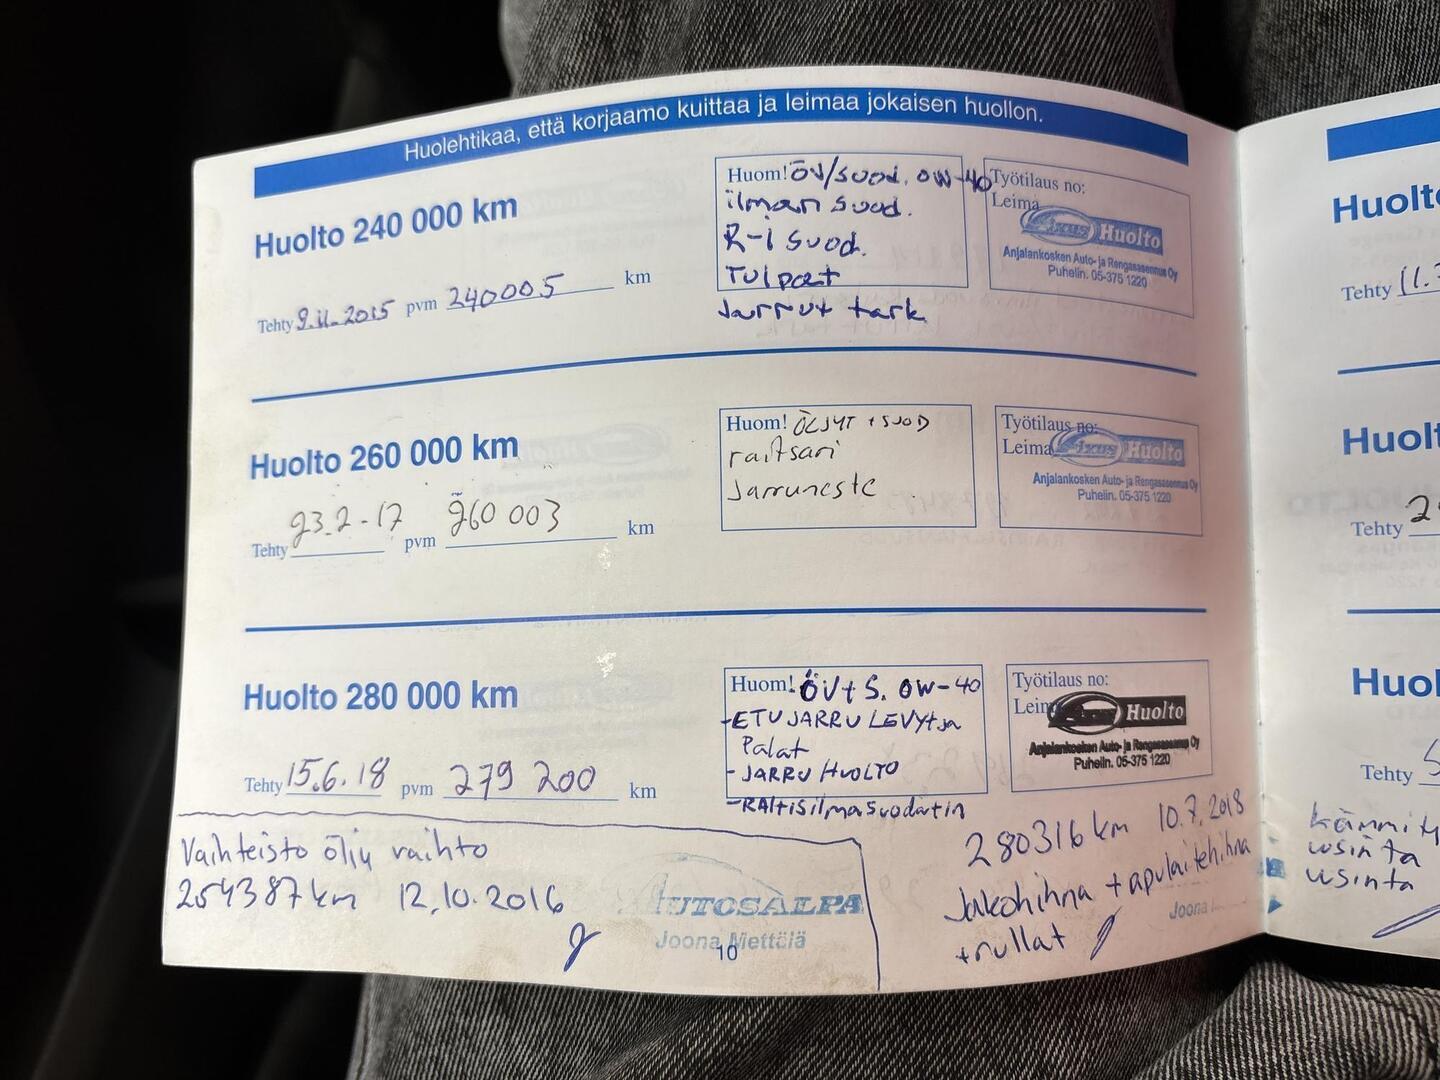 Huolehtikaa, että korjaamo kuittaa ja leimaa jokaisen huollon.
Huolto 240 000 km
Tehty 9.11.2015 pvm 240005 km
Huom! ÖV/suod. 0W-40
ilman suod.
R-i suod.
Tulpat
Jarrut tark
Työtilaus no:
Leima
Huolto
Anjalankosken Auto- ja Rengasasennus Oy
Puhelin. 05-375 1220
Huolto 260 000 km
Tehty 23.2-17 pvm 260 003 km
Huom! ÖLJYT + SUOD
raitsari
Jarruneste
Työtilaus no:
Leima
Huolto
Anjalankosken Auto- ja Rengasasennus Oy
Puhelin. 05-375 1220
Huolto 280 000 km
Tehty 15.6.18 pvm 279 200 km
Huom! ÖV+S. 0W-40
-ETUJARRU LEVYT ja
Palat
- JARRU HUOLTO
-RAItisilmasuodatin
Työtilaus no:
Leim
Huolto
Anjalankosken Auto- ja Rengasasennus Oy
Puhelin. 05-375 1220
Vaihteisto öljy vaihto
254387km 12.10.2016
UTOSALPA
Joona Mettälä
10
280316 km 10.7.2018
Jakohihna + apulaitehihna
+rullat
Joona
Huolt
Tehty 11.
Huolt
Tehty 2
Huol
Tehty 5